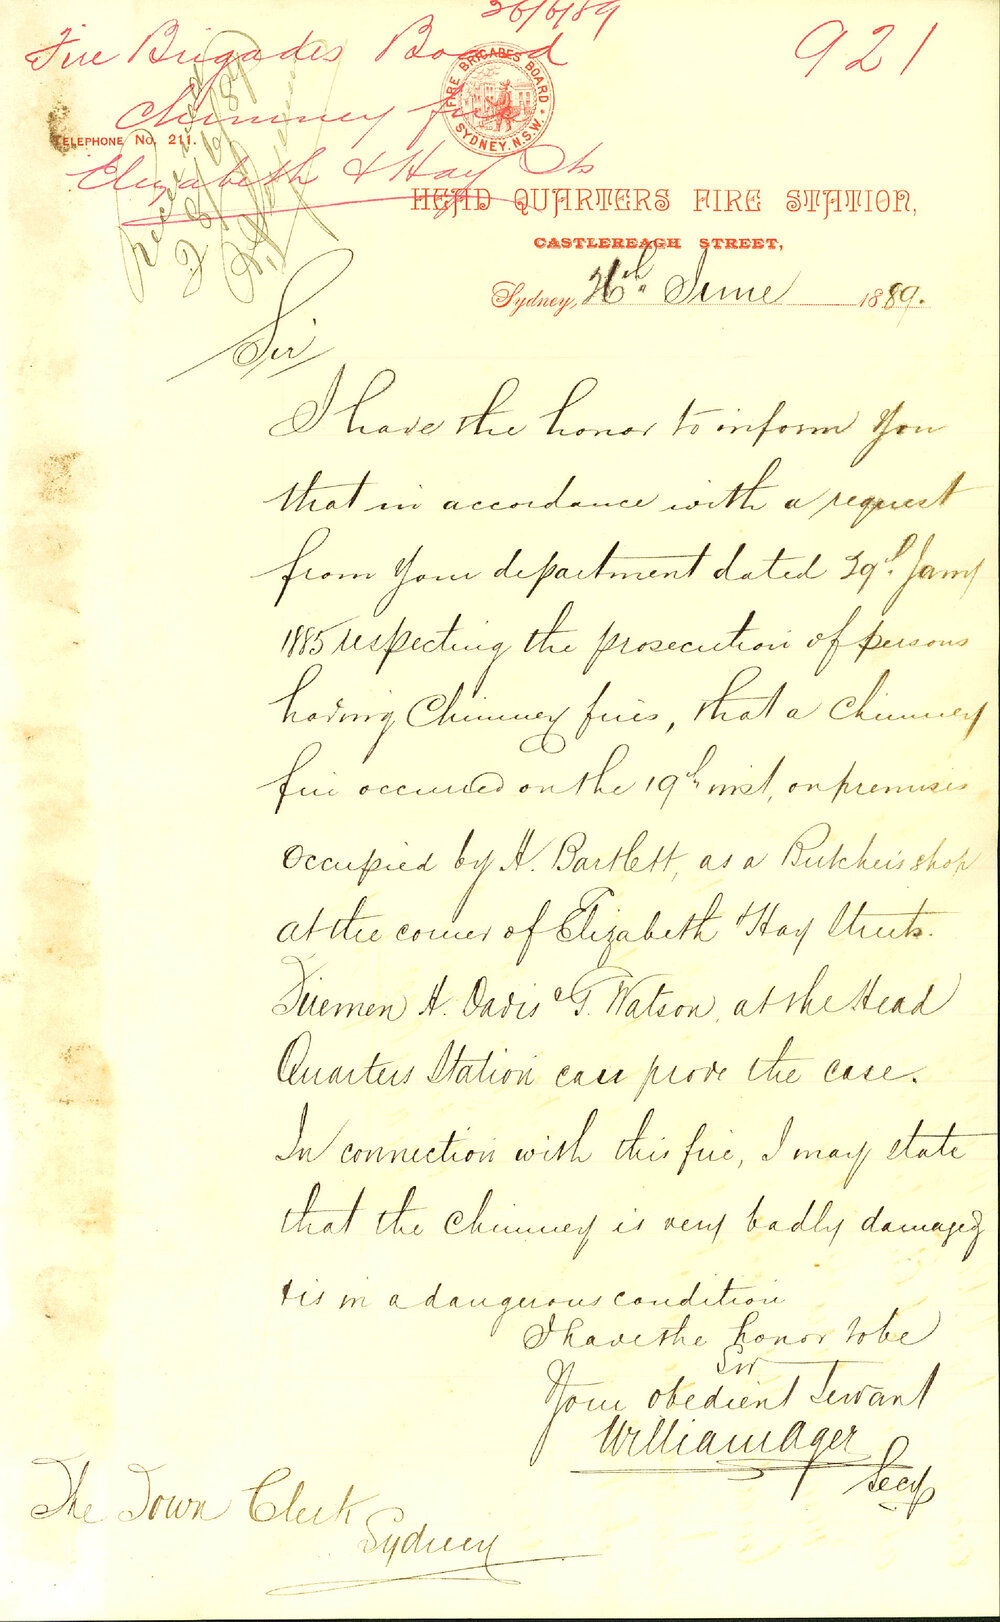 26/6/89
Fire Brigades Board
921
Chimney fire
Elizabeth & Hay Sts
FIRE BRIGADES BOARD
SYDNEY. N.S.W.
TELEPHONE No. 211.
HEAD QUARTERS FIRE STATION,
CASTLEREAGH STREET,
Sydney, 26th June 1889.
Sir
I have the honor to inform You
that in accordance with a request
from Your department dated 29th Jany
1885 respecting the prosecution of persons
having Chimney fires, that a Chimney
fire occurred on the 19th inst, on premises
Occupied by H. Bartlett, as a Butchers shop
at the corner of Elizabeth & Hay Streets.
Firemen H. Davis & G. Watson, at the Head
Quarters Station can prove the case.
In connection with this fire, I may state
that the Chimney is very badly damaged
& is in a dangerous condition
I have the honor to be
Sir
Your obedient Servant
William Ager
Secy
The Town Clerk
Sydney